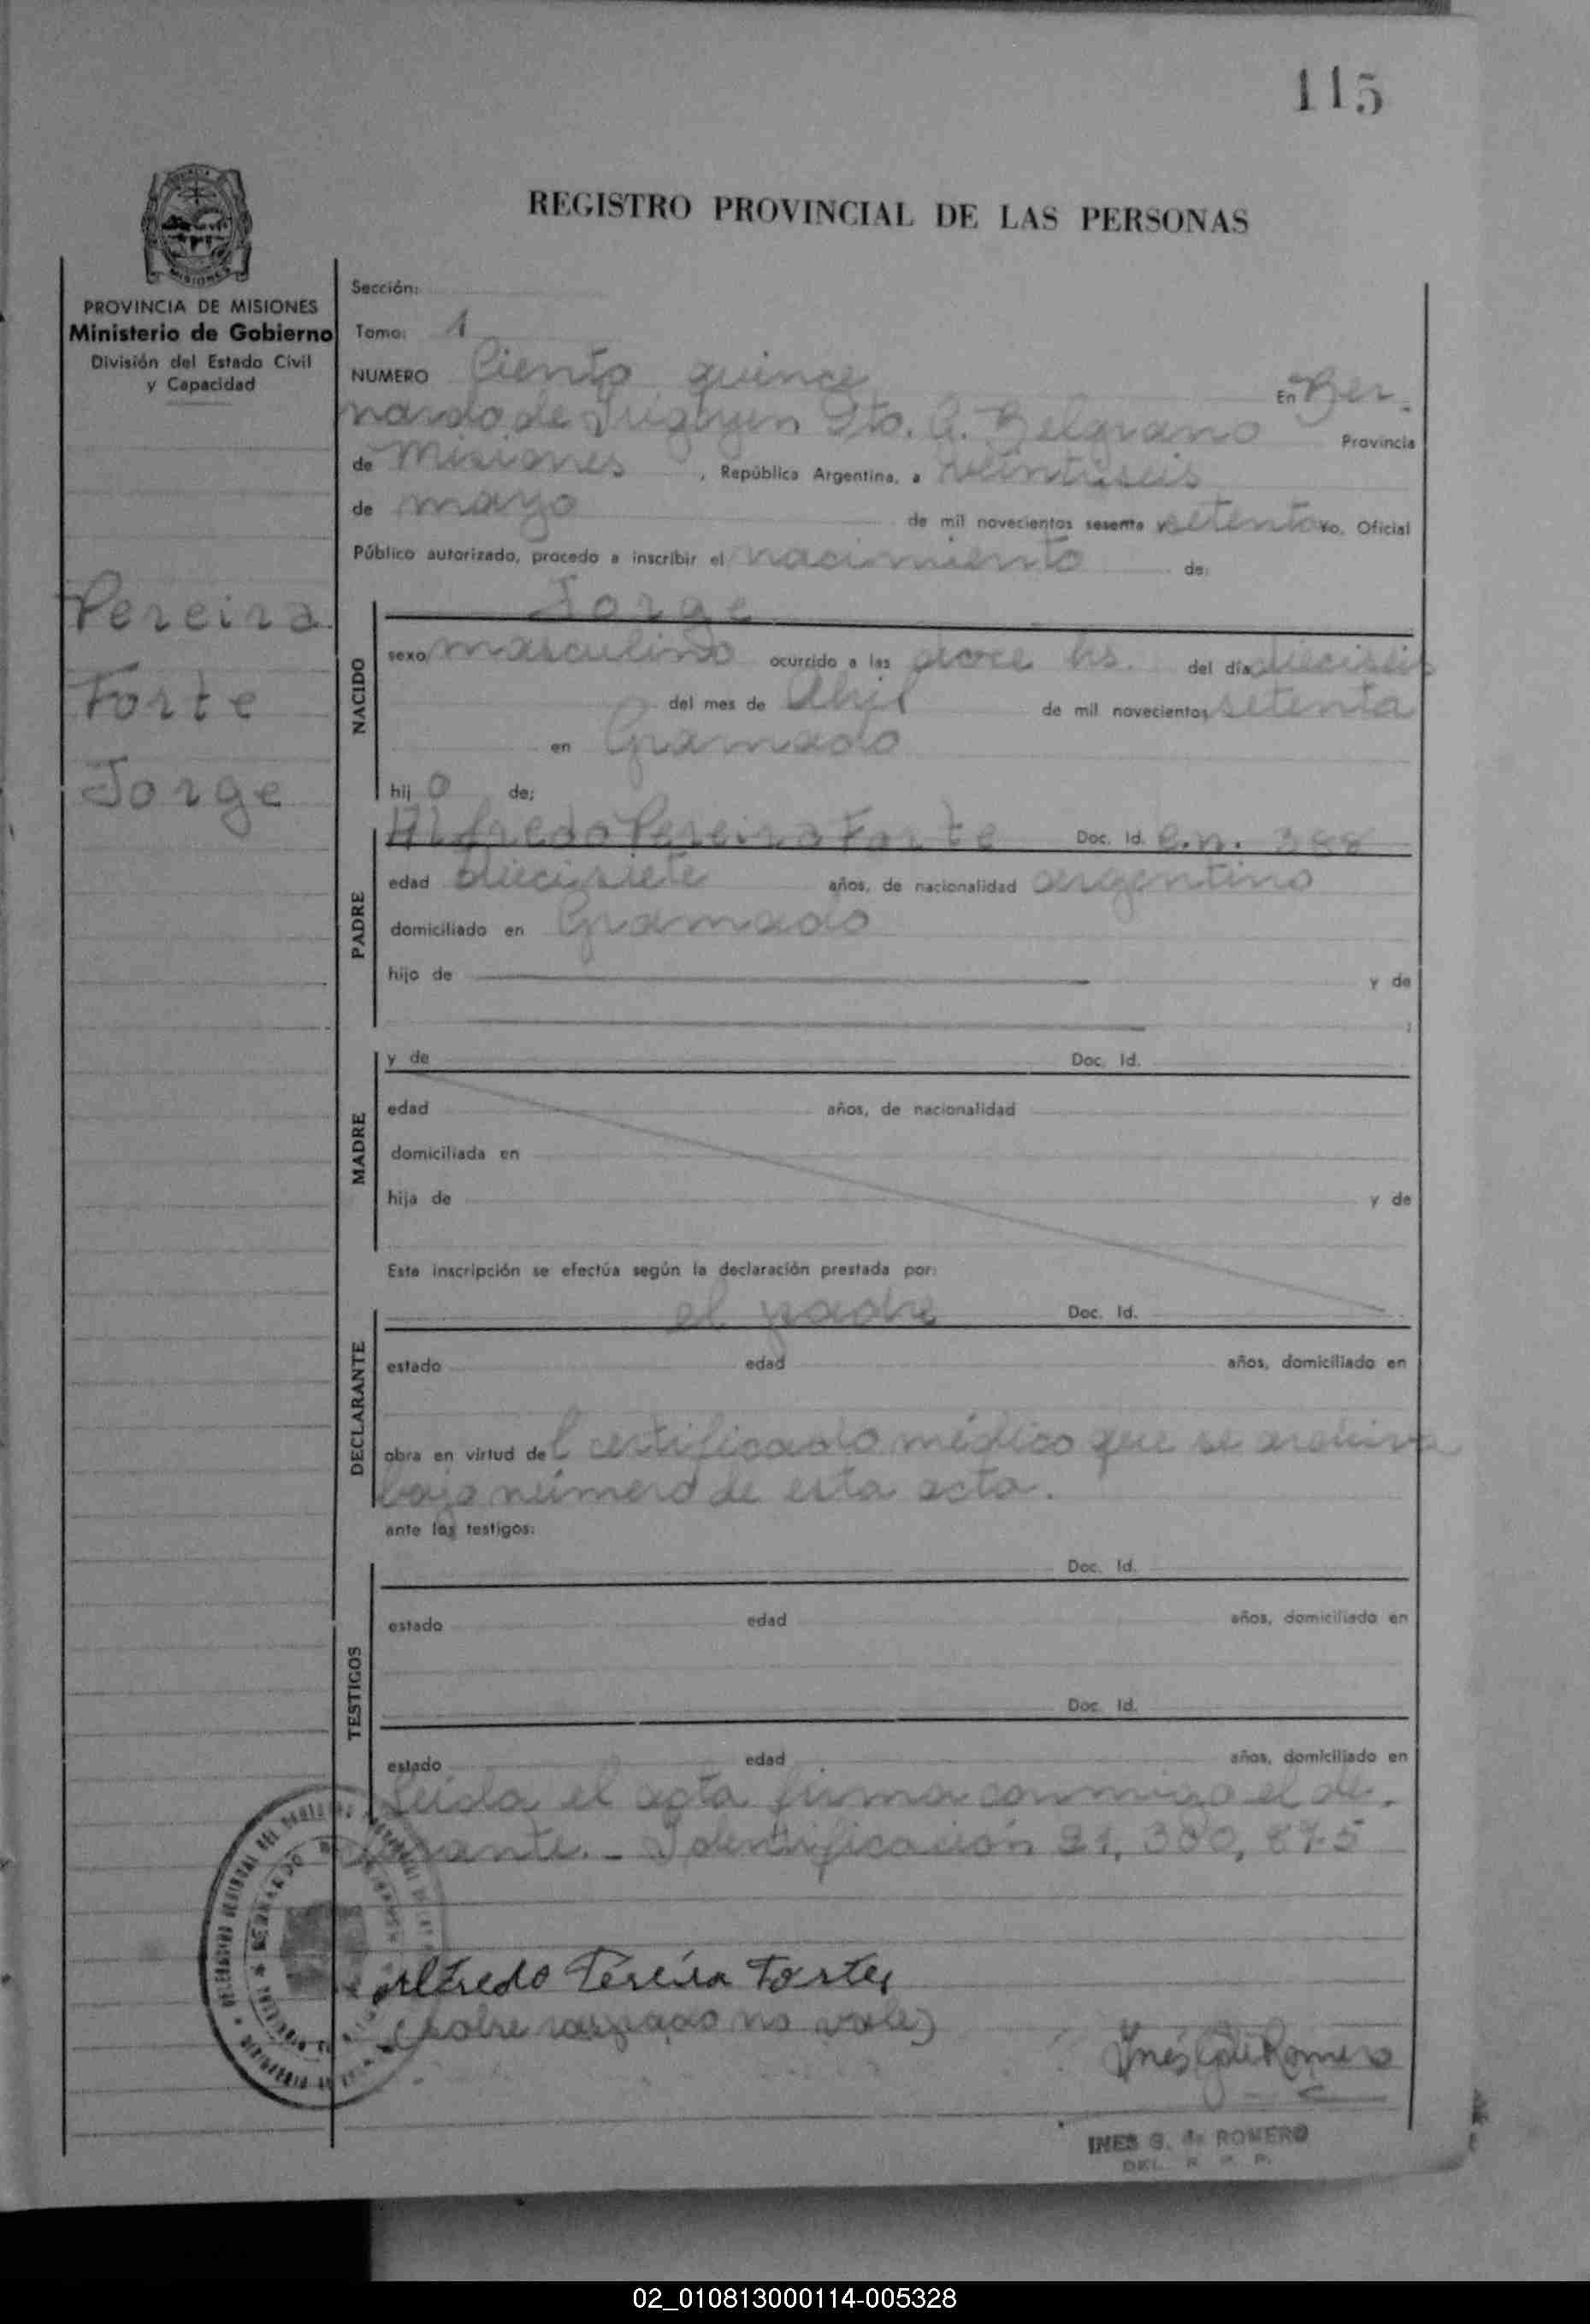 115
REGISTRO PROVINCIAL DE LAS PERSONAS
MISIONES
PROVINCIA DE MISIONES
Ministerio de Gobierno
División del Estado Civil
y Capacidad
Pereira
Forte
Jorge
Sección:
Tomo: 1
NUMERO Ciento quince En Ber-
nardo de Irigoyen Dto. G. Belgrano Provincia
de Misiones, República Argentina, a veintiseis
de mayo de mil novecientos sesenta y setenta Yo, Oficial
Público autorizado, procedo a inscribir el nacimiento de:
Jorge
NACIDO
sexo masculino ocurrido a las doce hs. del día dieciseis
del mes de Abril de mil novecientos setenta
en Gramado
hijo de:
PADRE
Alfredo Pereira Forte Doc. Id. C.N. 388
edad diecisiete años, de nacionalidad argentino
domiciliado en Gramado
hijo de y de
MADRE
y de Doc. Id.
edad años, de nacionalidad
domiciliada en
hija de y de
Esta inscripción se efectúa según la declaración prestada por:
DECLARANTE
el padre Doc. Id.
estado edad años, domiciliado en
obra en virtud del certificado médico que se archiva
bajo número de esta acta.
ante los testigos:
TESTIGOS
Doc. Id.
estado edad años, domiciliado en
Doc. Id.
estado edad años, domiciliado en
Leída el acta firma conmigo el de-
Identificación 21,300,875
Alfredo Pereira Fortes
(sobre raspado no vale)
Inés G. de Romero
INES G. de ROMERO
DEL. R. P. P.
02_010813000114-005328